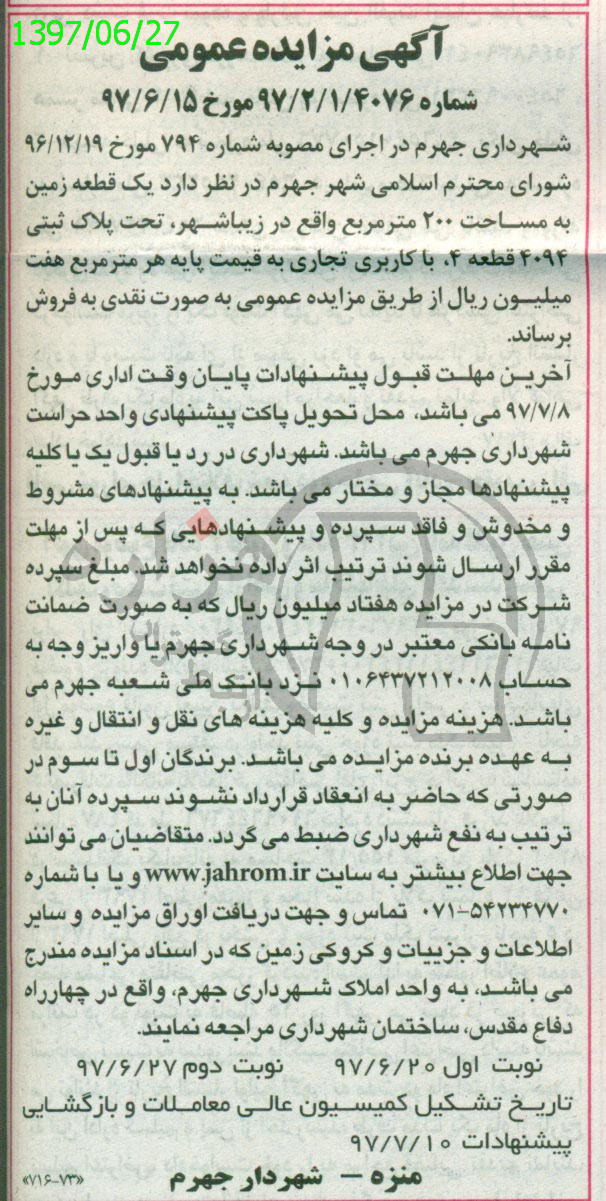 1397/06/27
آگهی مزایده عمومی
شماره ۹۷/۲/۱/۴۰۷۶ مورخ ۹۷/۶/۱۵
شهرداری جهرم در اجرای مصوبه شماره ۷۹۴ مورخ ۹۶/۱۲/۱۹
شورای محترم اسلامی شهر جهرم در نظر دارد یک قطعه زمین
به مساحت ۲۰۰ مترمربع واقع در زیباشهر، تحت پلاک ثبتی
۴۰۹۴ قطعه ۴، با کاربری تجاری به قیمت پایه هر مترمربع هفت
میلیون ریال از طریق مزایده عمومی به صورت نقدی به فروش
برساند.
آخرین مهلت قبول پیشنهادات پایان وقت اداری مورخ
۹۷/۷/۸ می باشد، محل تحویل پاکت پیشنهادی واحد حراست
شهرداری جهرم می باشد. شهرداری در رد یا قبول یک یا کلیه
پیشنهادها مجاز و مختار می باشد. به پیشنهادهای مشروط
و مخدوش و فاقد سپرده و پیشنهادهایی که پس از مهلت
مقرر ارسال شوند ترتیب اثر داده نخواهد شد. مبلغ سپرده
شرکت در مزایده هفتاد میلیون ریال که به صورت ضمانت
نامه بانکی معتبر در وجه شهرداری جهرم یا واریز وجه به
حساب ۰۱۰۶۴۳۷۲۱۲۰۰۸ نزد بانک ملی شعبه جهرم می
باشد. هزینه مزایده و کلیه هزینه های نقل و انتقال و غیره
به عهده برنده مزایده می باشد. برندگان اول تا سوم در
صورتی که حاضر به انعقاد قرارداد نشوند سپرده آنان به
ترتیب به نفع شهرداری ضبط می گردد. متقاضیان می توانند
جهت اطلاع بیشتر به سایت www.jahrom.ir و یا با شماره
۰۷۱-۵۴۲۳۴۷۷۰ تماس و جهت دریافت اوراق مزایده و سایر
اطلاعات و جزییات و کروکی زمین که در اسناد مزایده مندرج
می باشد، به واحد املاک شهرداری جهرم، واقع در چهارراه
دفاع مقدس، ساختمان شهرداری مراجعه نمایند.
نوبت اول ۹۷/۶/۲۰ نوبت دوم ۹۷/۶/۲۷
تاریخ تشکیل کمیسیون عالی معاملات و بازگشایی
پیشنهادات ۹۷/۷/۱۰
منزه – شهردار جهرم
«۷۱۶-۷۳»